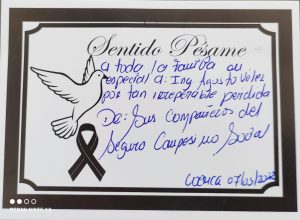 Sentido Pésame
a toda la familia en
especial a: Ing Agusto Velez
por tan irreparable perdida
De: Sus Compañeros del
Seguro Campesino Social
Cuenca 07/03/
REDMI NOTE 10